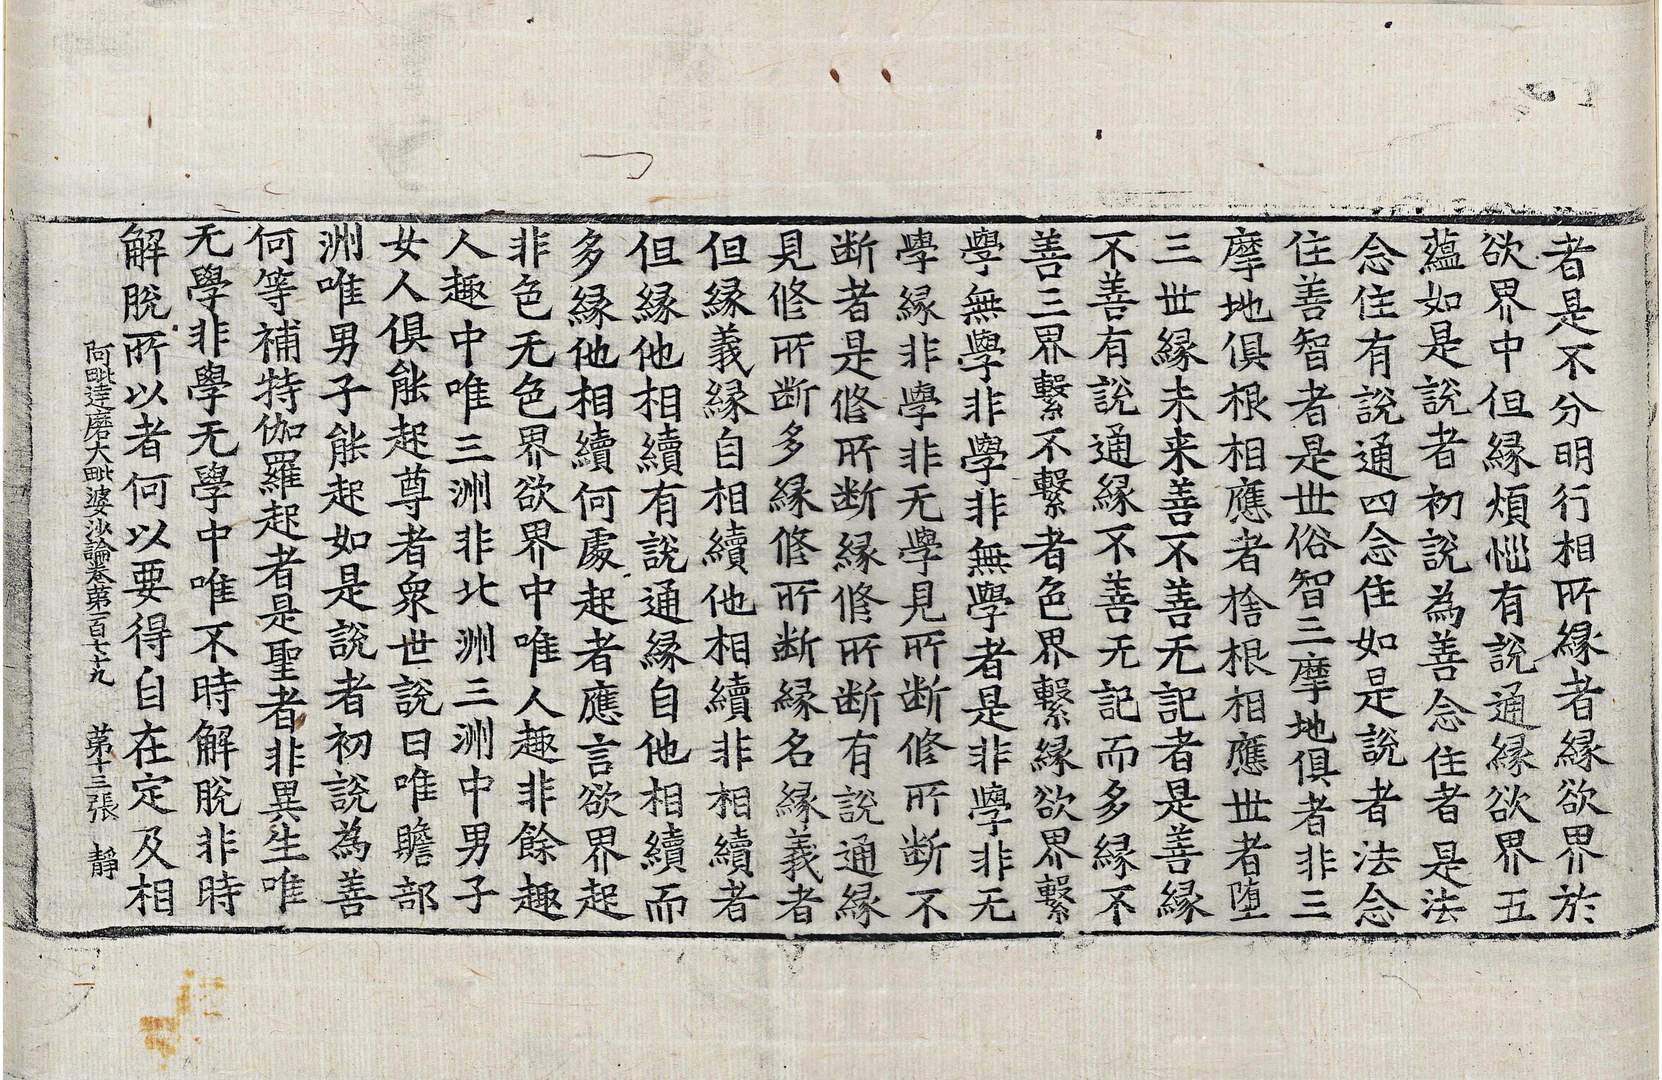 者是不分明行相所縁者縁欲界於
欲界中但縁煩惱有說通縁欲界五
蘊如是說者初說為善念住者是法
念住有說通四念住如是說者法念
住善智者是世俗智三摩地俱者非三
摩地俱根相應者捨根相應世者堕
三世縁未来善不善无記者是善縁
不善有說通縁不善无記而多縁不
善三界繫不繫者色界繫縁欲界繫
學無學非學非無學者是非學非无
學縁非學非无學見所断修所断不
断者是修所断縁修所断有說通縁
見修所断多縁修所断縁名縁義者
但縁義縁自相續他相續非相續者
但縁他相續有說通縁自他相續而
多縁他相續何處起者應言欲界起
非色无色界欲界中唯人趣非餘趣
人趣中唯三洲非北洲三洲中男子
女人俱能起尊者衆世說曰唯贍部
洲唯男子能起如是說者初說為善
何等補特伽羅起者是聖者非異生唯
无學非學无學中唯不時解脫非時
解脫所以者何以要得自在定及相
阿毗達磨大毗婆沙論卷第一百七十九 第十三張 靜